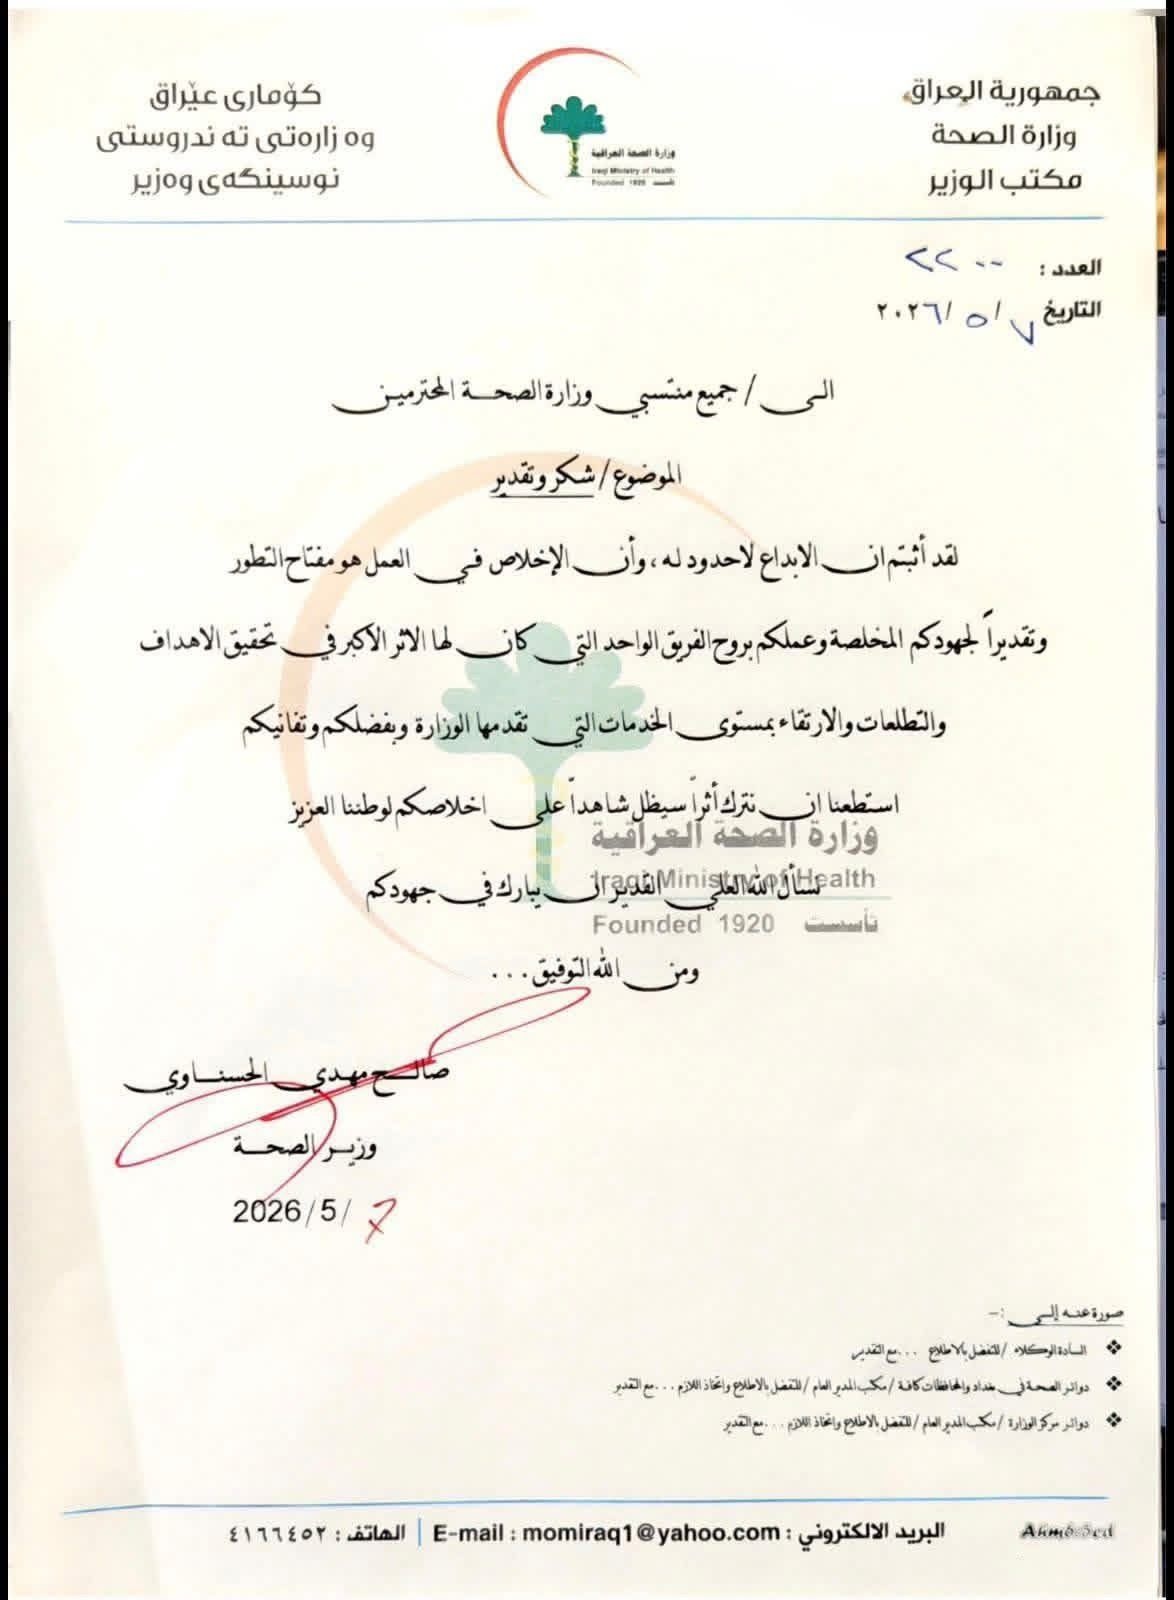 جمهورية العراق
وزارة الصحة
مكتب الوزير
كۆماری عێراق
وه زارەتی ته ندروستی
نوسینگەی وەزیر
وزارة الصحة العراقية
Iraqi Ministry of Health
Founded 1920 تأسست
العدد : ٢٢٠٠
التاريخ ٧/ ٥ /٢٠٢٦
الى / جميع منتسبي وزارة الصحة المحترمين
الموضوع / شكر وتقدير
لقد أثبتم ان الابداع لاحدود له ، وأن الإخلاص في العمل هو مفتاح التطور
وتقديراً لجهودكم المخلصة وعملكم بروح الفريق الواحد التي كان لها الاثر الاكبر في تحقيق الاهداف
والتطلعات والارتقاء بمستوى الخدمات التي تقدمها الوزارة وبفضلكم وتفانيكم
استطعنا ان نترك أثراً سيظل شاهداً على اخلاصكم لوطننا العزيز
وزارة الصحة العراقية
نسأل الله العلي القدير ان يبارك في جهودكم
Iraqi Ministry of Health
Founded 1920 تأسست
ومن الله التوفيق ...
صالح مهدي الحسناوي
وزير الصحة
2026/5/ 7
صورة عنه إلى :-
❖ السادة الوكلاء / للتفضل بالاطلاع ...مع التقدير
❖ دوائر الصحة في بغداد والمحافظات كافة / مكتب المدير العام / للتفضل بالاطلاع واتخاذ اللازم ...مع التقدير
❖ دوائر مركز الوزارة / مكتب المدير العام / للتفضل بالاطلاع واتخاذ اللازم ...مع التقدير
البريد الالكتروني : E-mail : momiraq1@yahoo.com | الهاتف : ٤١٦٦٤٥٢